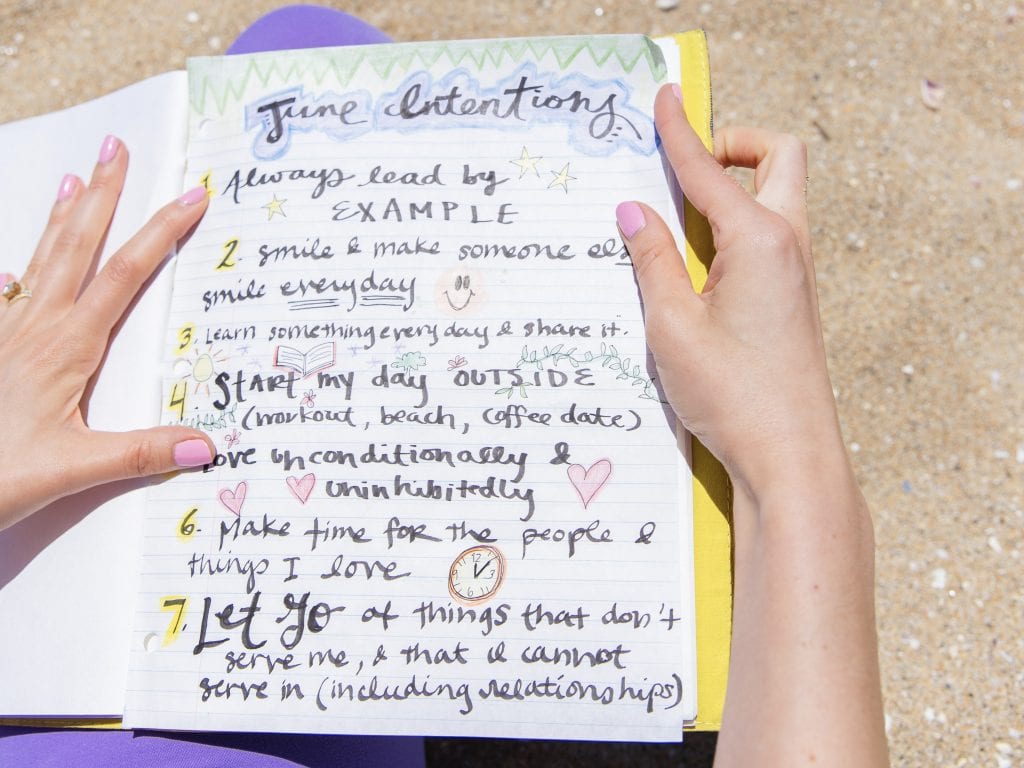 June Intentions
1 Always lead by
EXAMPLE
2. smile & make someone els
smile everyday
3. Learn something everyday & share it.
4. START my day OUTSIDE
(workout, beach, coffee date)
Love unconditionally &
uninhibitedly
6. Make time for the people &
things I love
12 3 6 9
7. Let go of things that don't
serve me, & that I cannot
serve in (including relationships)